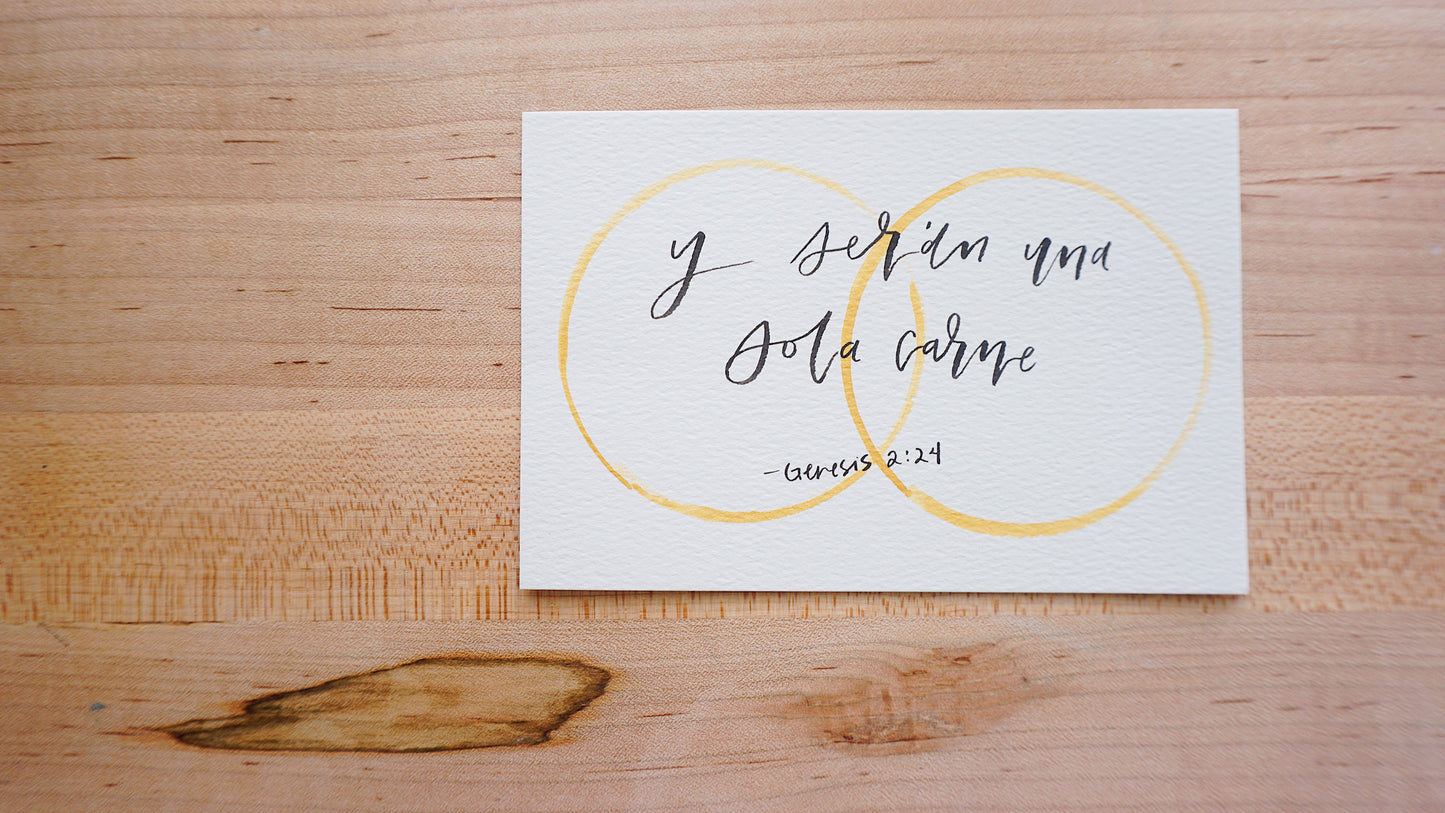 y serán una
sola carne
-Genesis 2:24